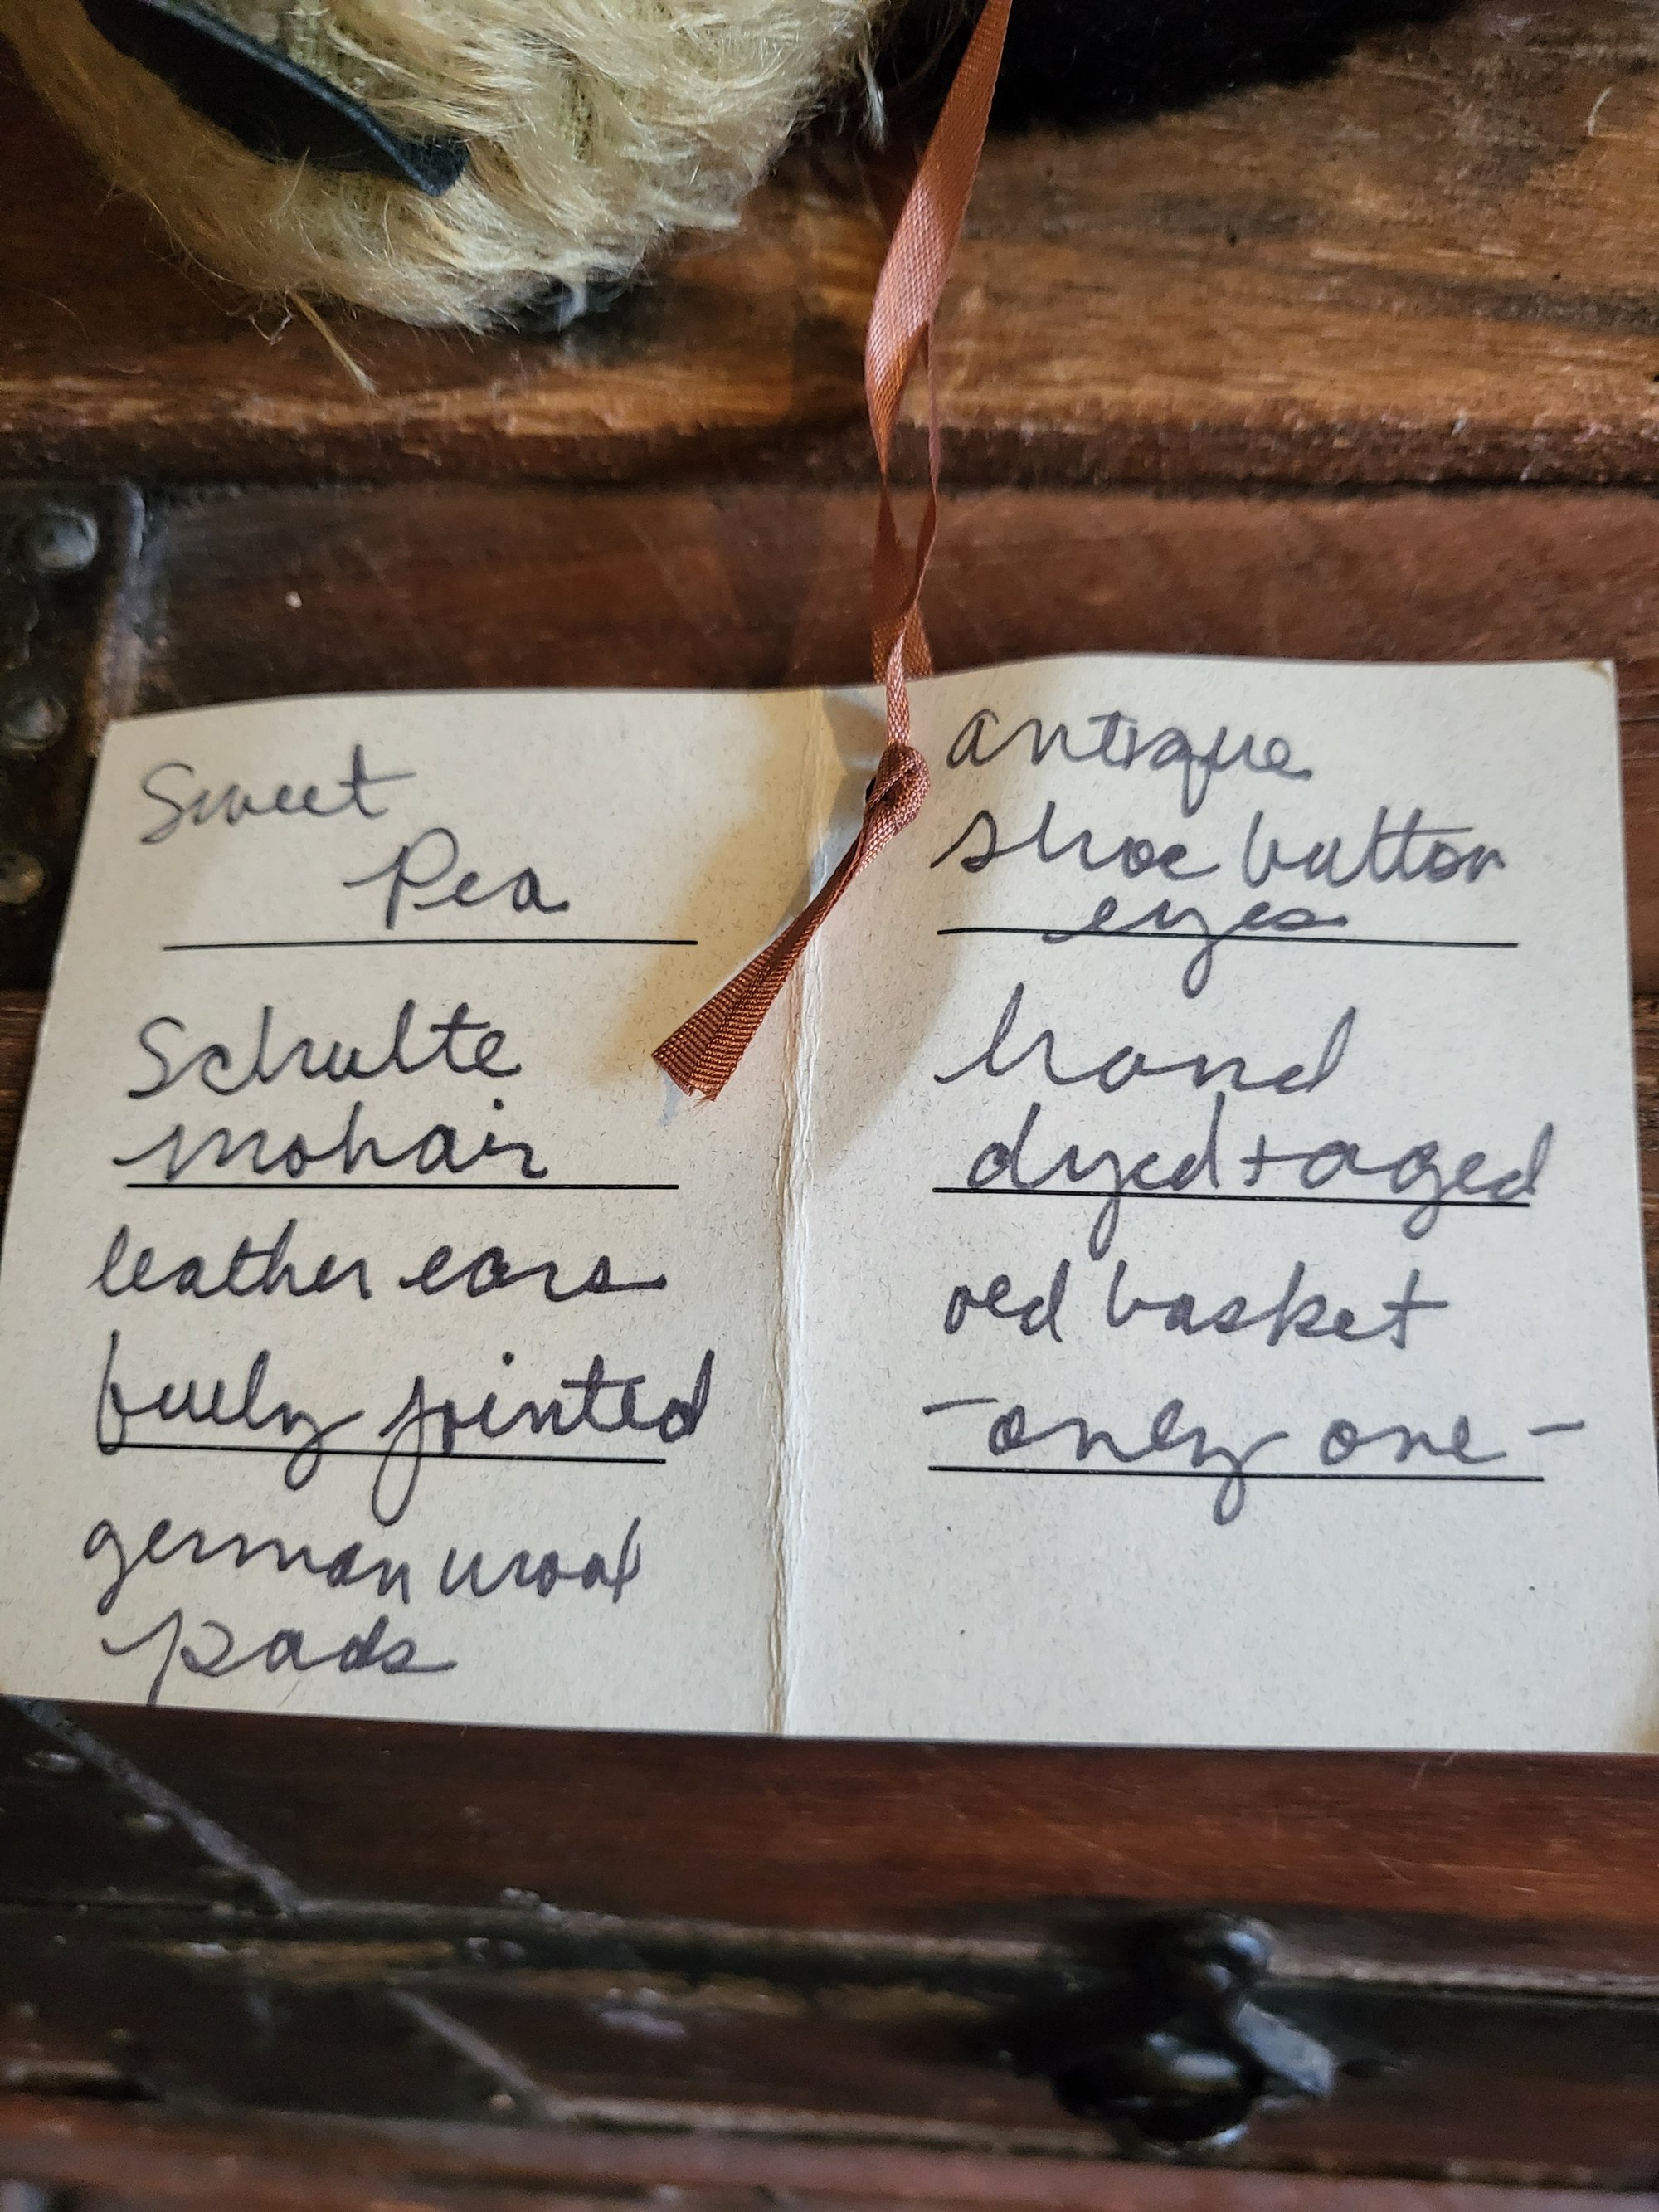 Sweet
Pea
Schulte
mohair
leather ears
fully jointed
german wool
pads
antique
shoe button
eyes
hand
dyed + aged
old basket
- only one -